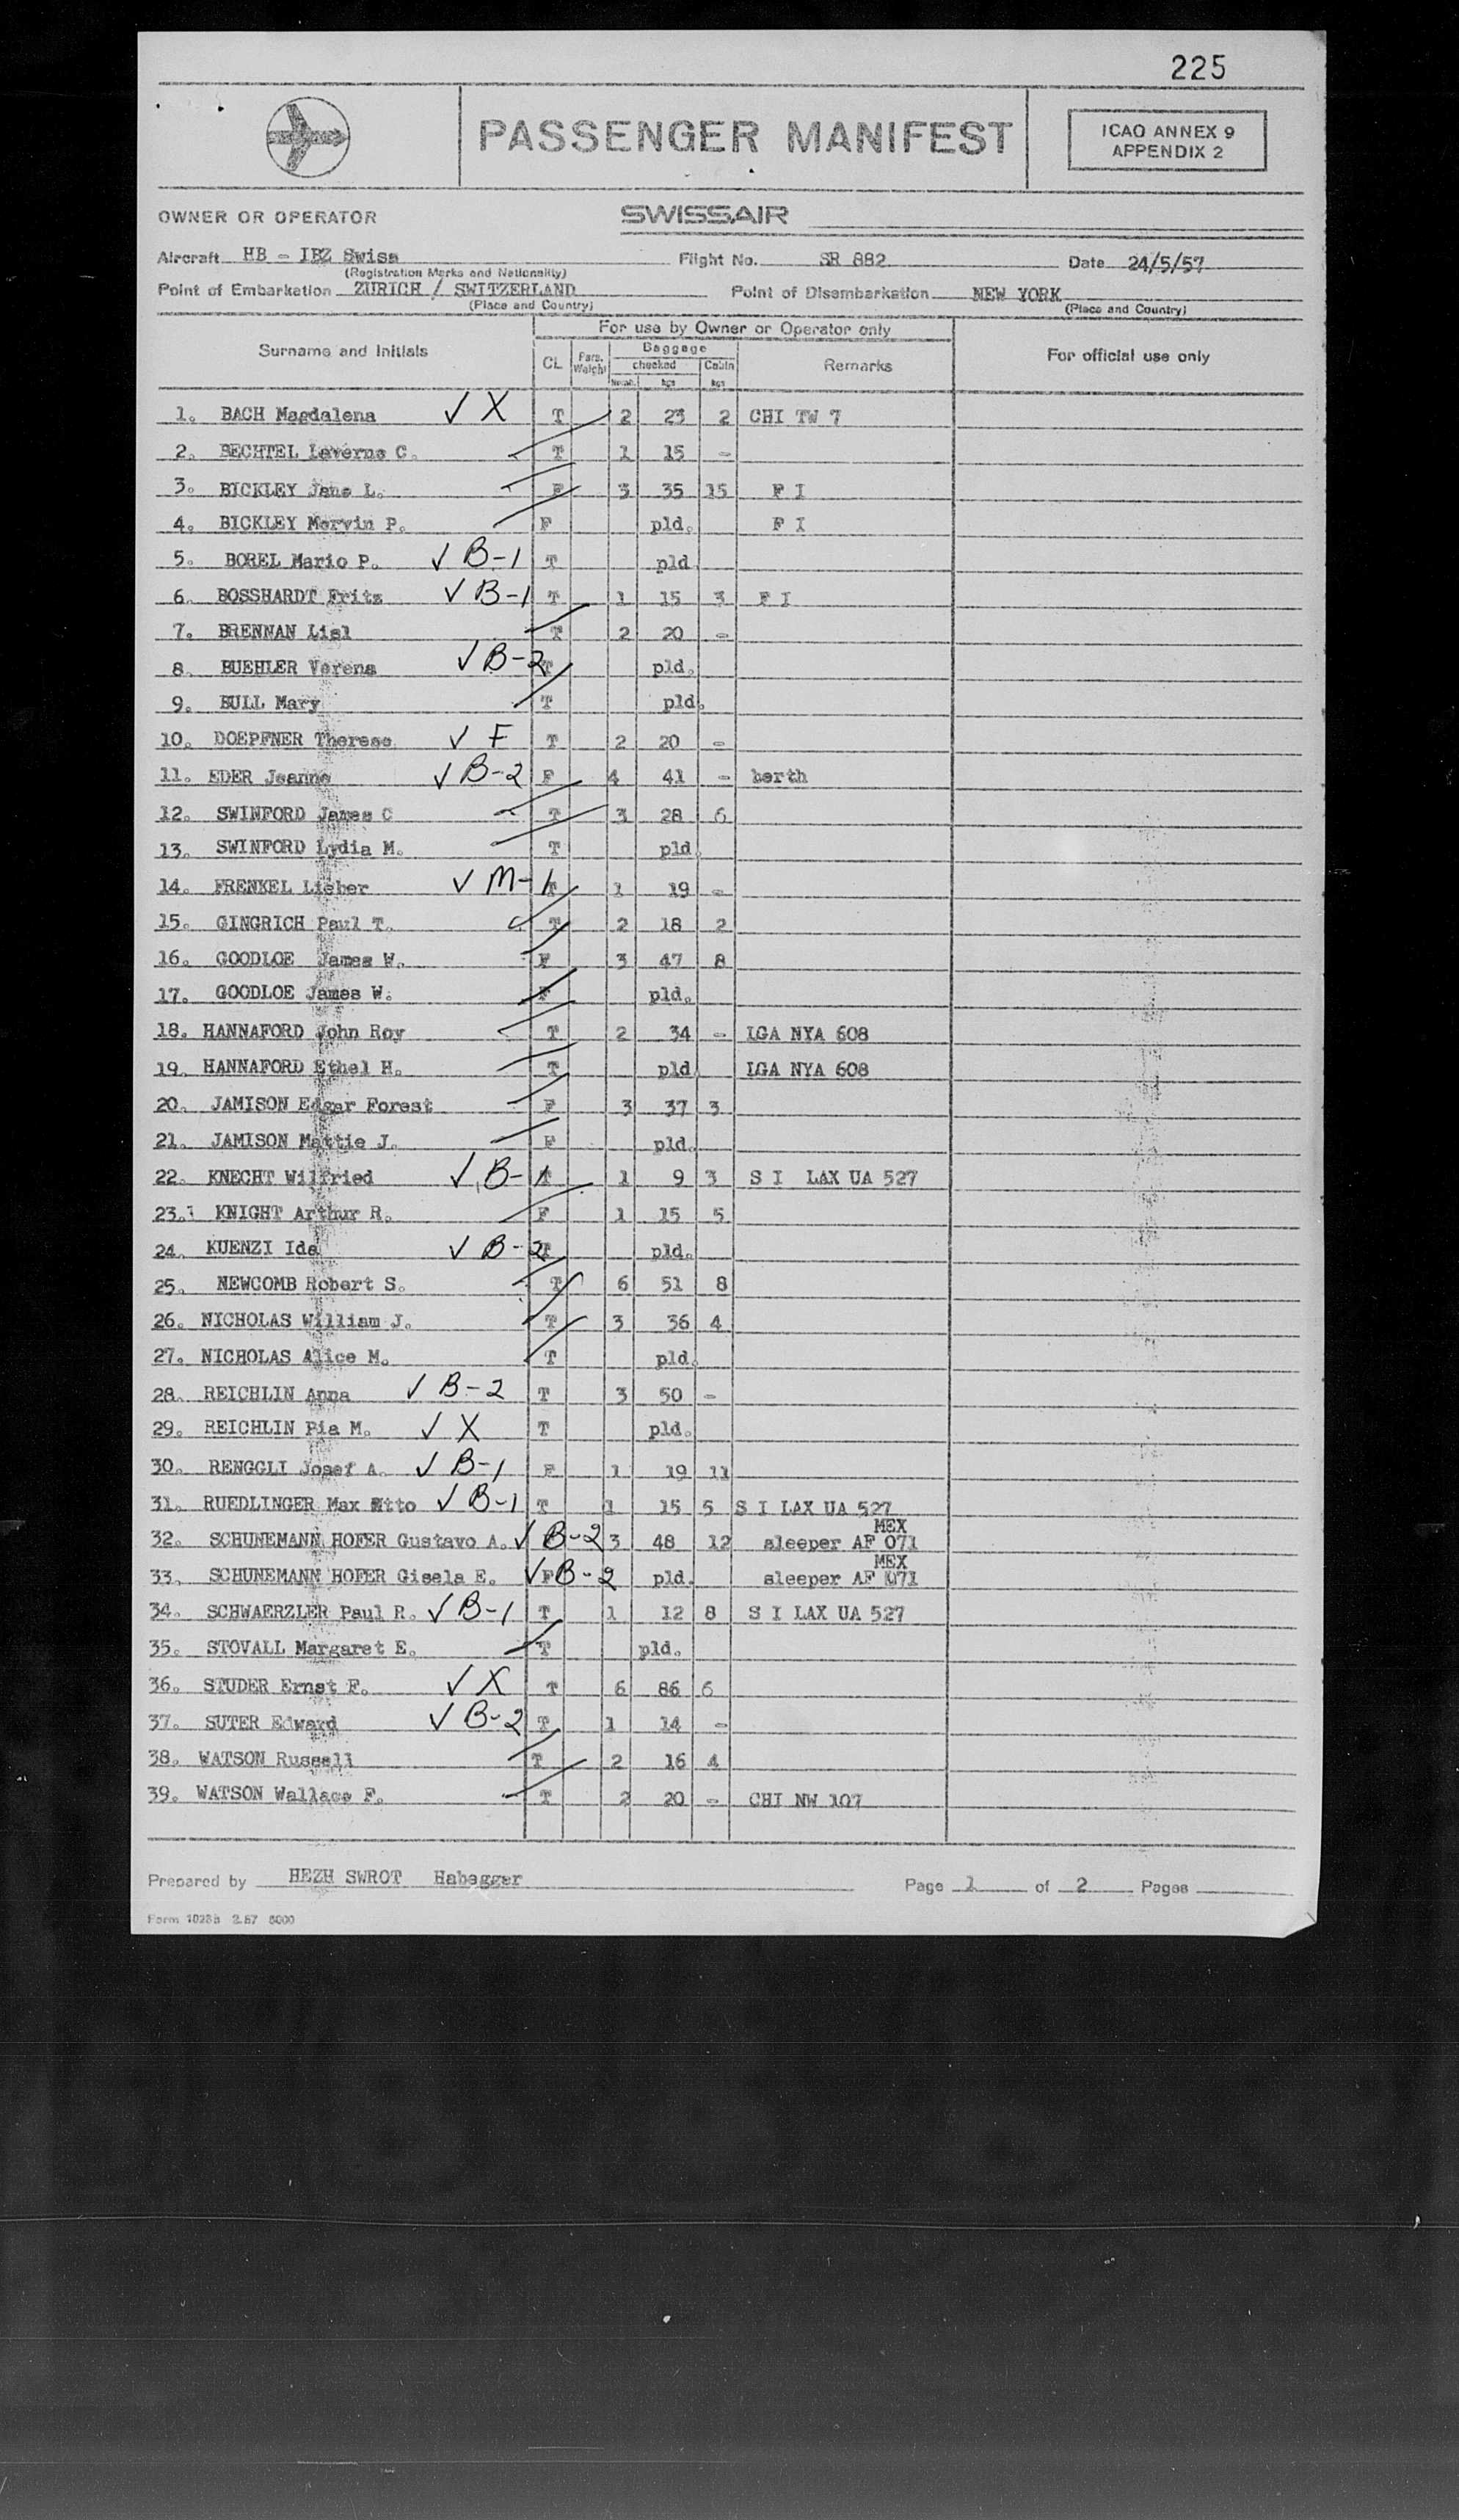 225
PASSENGER MANIFEST
ICAO ANNEX 9
APPENDIX 2
OWNER OR OPERATOR SWISSAIR
Aircraft HB - IBZ Swiss Flight No. SR 882 Date 24/5/57
(Registration Marks and Nationality)
Point of Embarkation ZURICH / SWITZERLAND Point of Disembarkation NEW YORK
(Place and Country) (Place and Country)
For use by Owner or Operator only
Surname and Initials CL Pass. Weight Baggage checked Cabin Remarks For official use only
kgs kgs
1. BACH Magdalena ✓ X T 2 23 2 CHI TW 7
2. BECHTEL Laverne C. T 1 15 -
3. BICKLEY Jane L. F 3 35 15 F I
4. BICKLEY Mervin P. F pld. F I
5. BOREL Mario P. ✓ B-1 T pld
6. BOSSHARDT Fritz ✓ B-1 T 1 15 3 F I
7. BRENNAN Lisl T 2 20 -
8. BUEHLER Verena ✓ B-2 T pld.
9. BULL Mary T pld.
10. DOEPFNER Therese ✓ F T 2 20 -
11. EDER Jeanne ✓ B-2 F 4 41 - berth
12. SWINFORD James C T 3 28 6
13. SWINFORD Lydia M. T pld.
14. FRENKEL Lieber ✓ M-1 T 1 19 -
15. GINGRICH Paul T. T 2 18 2
16. GOODLOE James W. F 3 47 8
17. GOODLOE James W. F pld.
18. HANNAFORD John Roy T 2 34 - LGA NYA 608
19. HANNAFORD Ethel H. T pld. LGA NYA 608
20. JAMISON Edgar Forest F 3 37 3
21. JAMISON Mattie J. F pld.
22. KNECHT Wilfried ✓ B-1 T 1 9 3 S I LAX UA 527
23. KNIGHT Arthur R. F 1 15 5
24. KUENZI Ida ✓ B-2 T pld.
25. NEWCOMB Robert S. T 6 51 8
26. NICHOLAS William J. T 3 36 4
27. NICHOLAS Alice M. T pld.
28. REICHLIN Anna ✓ B-2 T 3 50 -
29. REICHLIN Pia M. ✓ X T pld.
30. RENGGLI Josef A. ✓ B-1 F 1 19 11
31. RUEDLINGER Max Otto ✓ B-1 T 1 15 5 S I LAX UA 527
MEX
32. SCHUNEMANN HOFER Gustavo A. ✓ B-2 3 48 12 sleeper AF 071
MEX
33. SCHUNEMANN HOFER Gisela E. ✓ F B-2 pld. sleeper AF 071
34. SCHWAERZLER Paul R. ✓ B-1 T 1 12 8 S I LAX UA 527
35. STOVALL Margaret E. T pld.
36. STUDER Ernst F. ✓ X T 6 86 6
37. SUTER Edward ✓ B-2 T 1 14 -
38. WATSON Russell T 2 16 4
39. WATSON Wallace F. T 2 20 - CHI NW 107
Prepared by HEZH SWROT Habegger Page 1 of 2 Pages
Form 1028b 2.57 5000